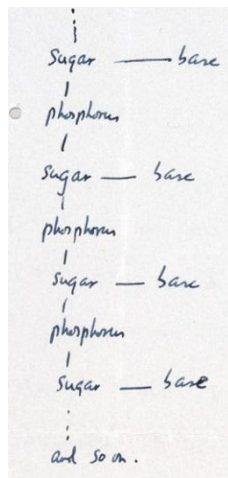 sugar — base
phosphorus
sugar — base
phosphorus
sugar — base
phosphorus
sugar — base
and so on.